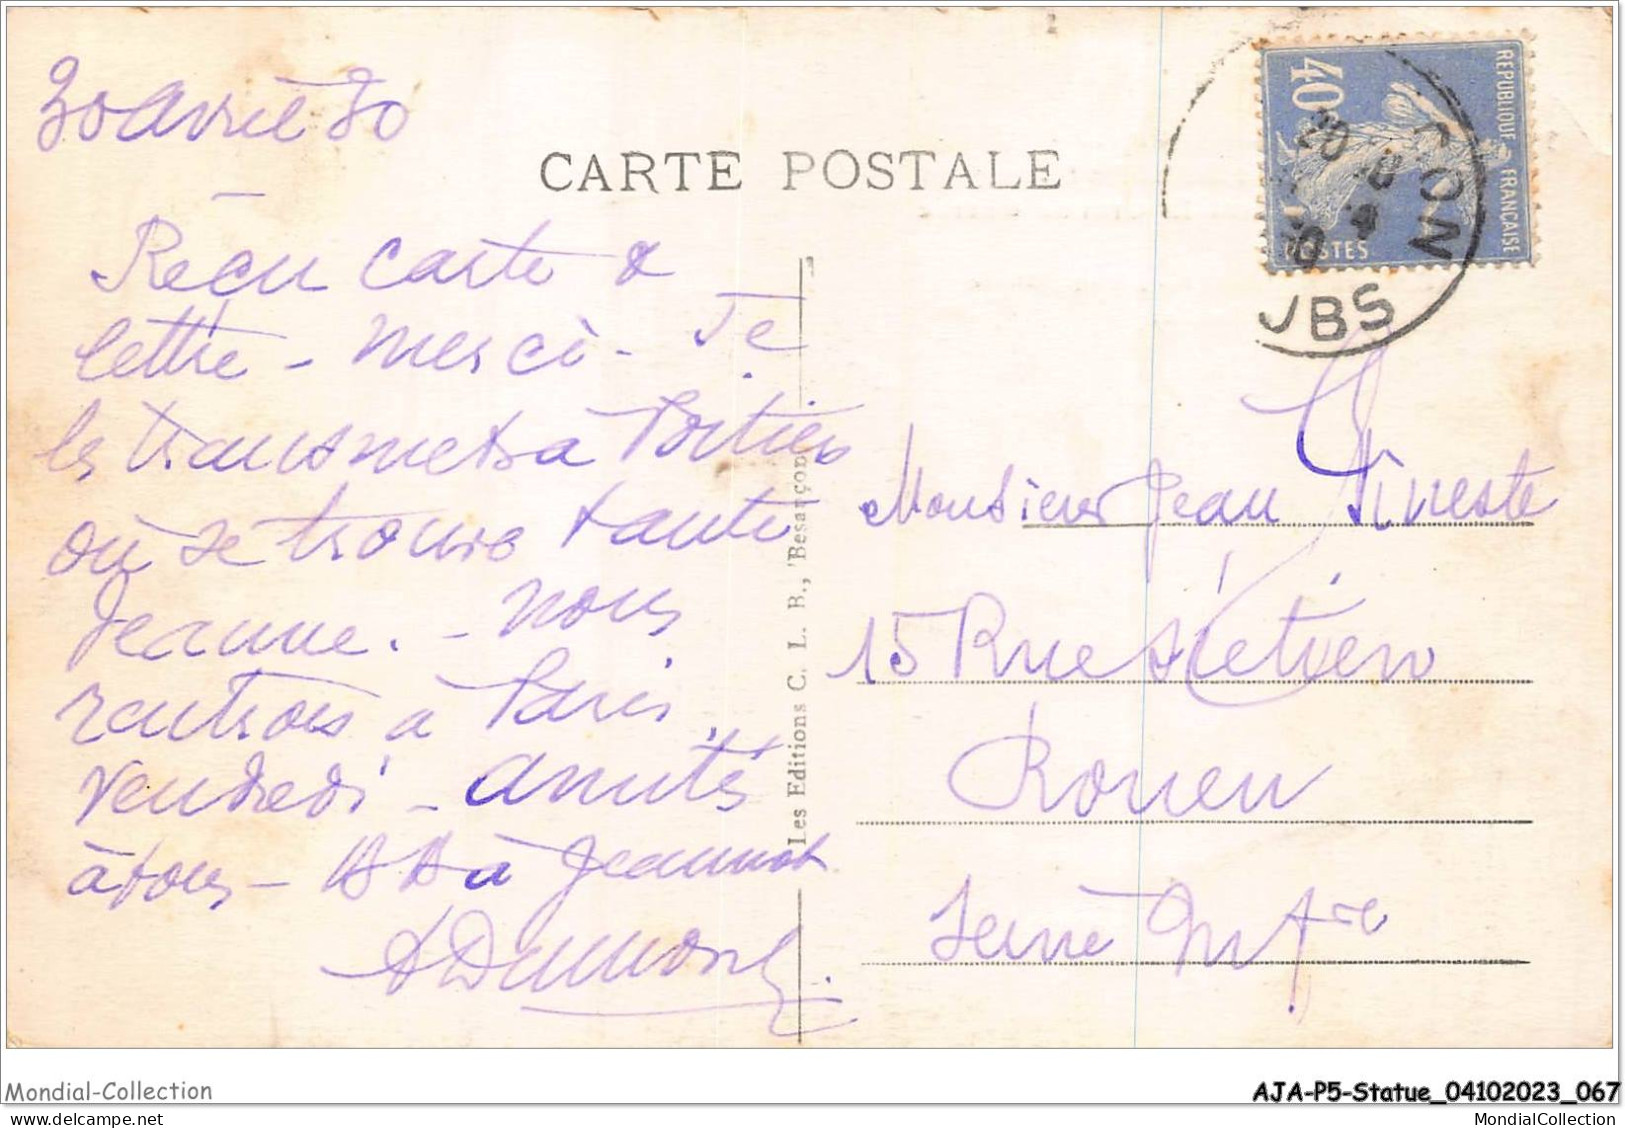 30 avril 30
CARTE POSTALE
Reçu carte &
lettre - merci - Je
les transmets à Poitiers
où se trouve tante
Jeanne. - nous
rentrons à Paris
vendredi - amitiés
à tous - à Jeannot
ADumont
Les Editions C. L. B., Besançon
40
REPUBLIQUE FRANÇAISE
POSTES
UBS
Monsieur Jean
15 Rue
Rouen
Seine
Mondial-Collection
AJA-P5-Statue_04102023_067
MondialCollection